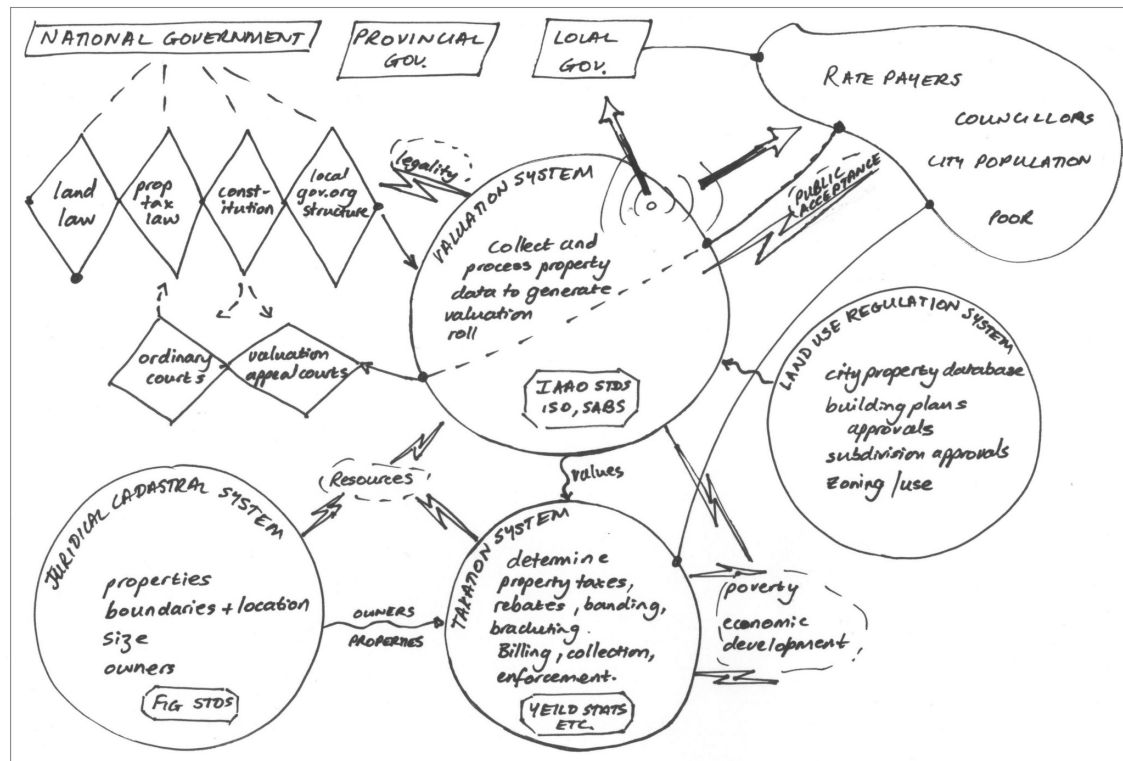 NATIONAL GOVERNMENT
PROVINCIAL
GOV.
LOCAL
GOV.
RATE PAYERS
COUNCILLORS
CITY POPULATION
POOR
land
law
prop
tax
law
const-
itution
local
gov.org
structure
legality
PUBLIC
ACCEPTANCE
ordinary
courts
valuation
appeal courts
VALUATION SYSTEM
collect and
process property
data to generate
valuation
roll
IAAO STDS
ISO, SABS
LAND USE REGULATION SYSTEM
city property database
building plans
approvals
subdivision approvals
zoning / use
Resources
values
JURIDICAL CADASTRAL SYSTEM
properties
boundaries + location
size
owners
FIG STDS
OWNERS
PROPERTIES
TAXATION SYSTEM
determine
property taxes,
rebates, banding,
bracketing.
Billing, collection,
enforcement.
YEILD STATS
ETC.
poverty
economic
development